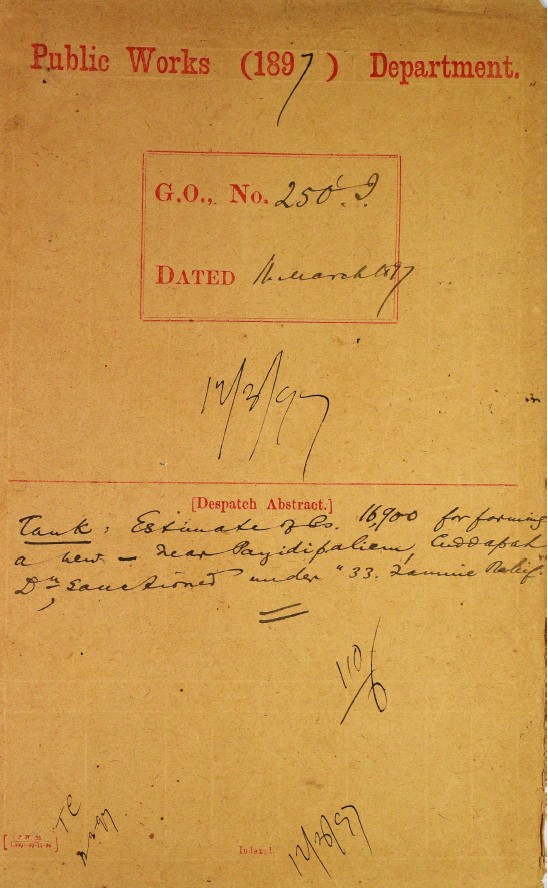 Public Works (1897) Department.
G.O., No. 250 I.
DATED 11 March 1897
12/3/97
[Despatch Abstract.]
Tank : Estimate of Rs. 16,900 for forming
a new — near Payidipaliem, Cuddapah
Dn, Sanctioned under "33. Famine Relief."
110/6
Indexed.
12/3/97